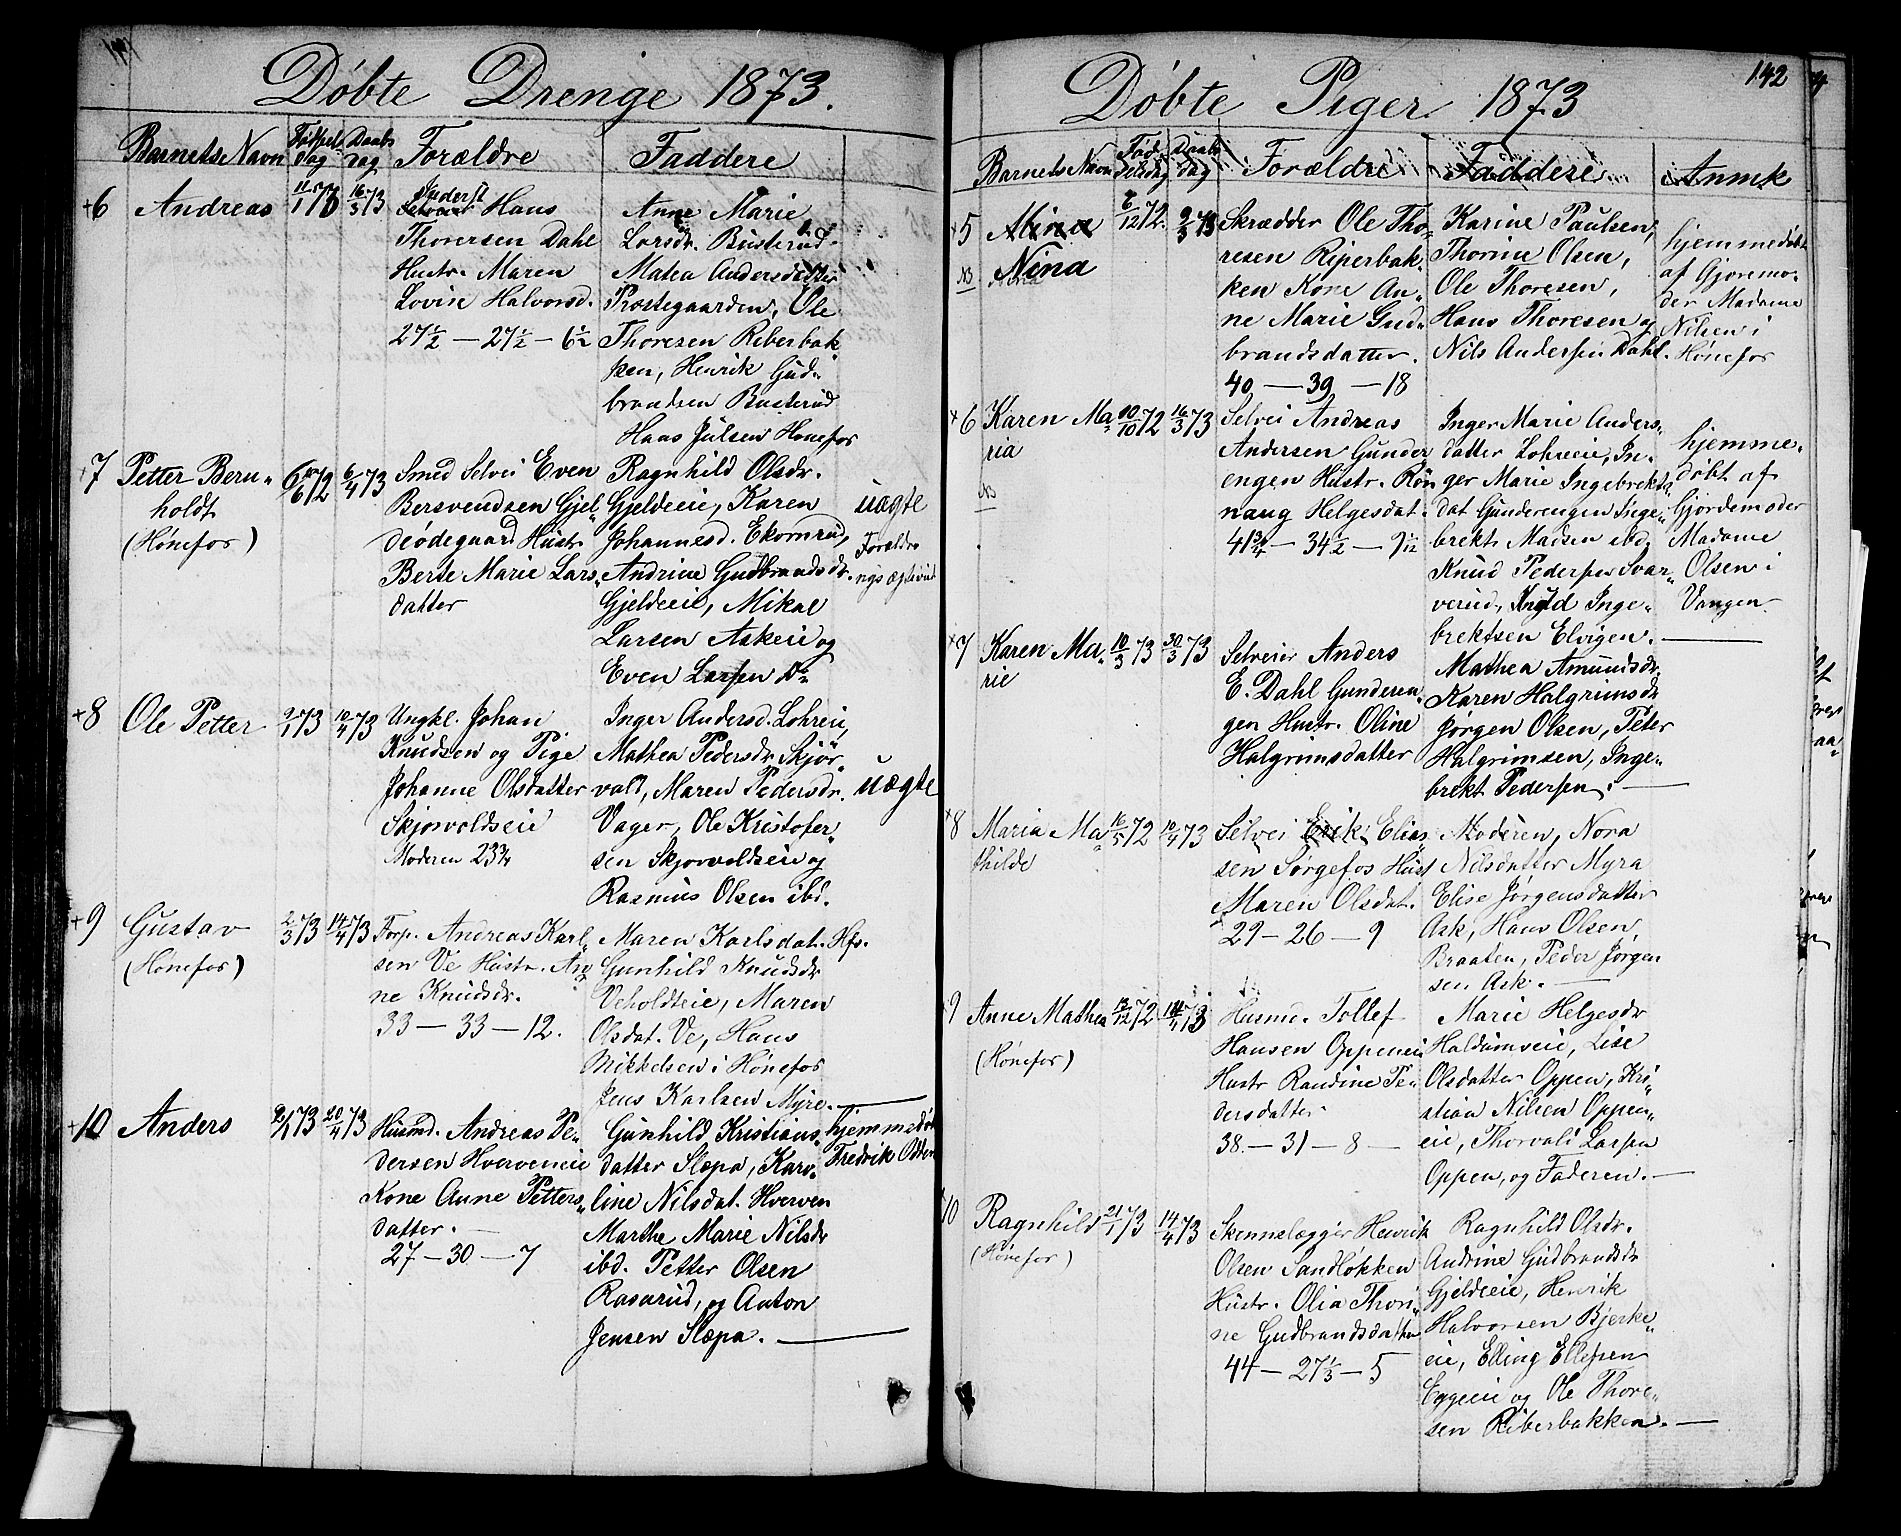 Døbte Drenge 1873.
Barnets Navn Fødselsdag Daabsdag Forældre Faddere
+6 Andreas 11/1 73 16/3 73
Inderst
Selveier Hans
Thoresen Dahl
Hustr. Maren
Lovise Halvorsd.
27 1/2 — 27 1/2 — 6 1/2
Anne Marie
Larsdr. Busterud
Matea Andersdatter
Præstegaarden, Ole
Thoresen Riberbak
ken, Henrik Gud„
brandsen Busterud
Hans Julsen Hønefos
+7 Petter Bern„
holdt
(Hønefos)
6/4 73
Smed Selvei Even
Bersvendsen Gjel„
deødegaard Hustr
Berte Marie Lars„
datter
Ragnhild Olsdr.
Gjeldeeie, Karen
Johannesd. Ekornrud,
Andrine Gudbrandsdr.
Gjeldeeie, Mikal
Larsen Askeie og
Even Larsen
uægte
Forældre
+8 Ole Petter 9/1 73 10/4 73
Ungkl. Johan
Knudsen og Pige
Johanne Olsdatter
Skjørvoldseie
Moderen 23 3/4
Inger Andersd. Lohreie,
Mathea Pedersdr. Skjør„
vold, Maren Pedersdr.
Vager, Ole Kristofer„
sen Skjorvoldseie og
Rasmus Olsen ibd.
uægte
+9 Gustav
(Hønefos)
2/3 73 14/4 73
Forp. Andreas Karl„
sen Ve Hustr. An„
ne Knudsdr.
33 — 33 — 12.
Maren Karlsdat. Hfs.
Gunhild Knudsdr
Veholdteie, Maren
Olsdat. Ve, Hans
Mikkelsen i Hønefos
Jens Karlsen Myre. —
+10 Anders 2/1 73 20/4 73
Husmd. Andreas Pe„
dersen Hverveneie
Kone Anne Petters„
datter. —
27 — 30 — 7
Gunhild Kristians„
datter Slæpa, Karo„
line Nilsdat. Hverven
Marthe Marie Nilsdr
ibd. Petter Olsen
Rasarud, og Anton
Jensen Slæpa. —
hjemmedøbt
Fredrik Odden
142
Døbte Piger 1873
Barnets Navn Fødselsdag Daabsdag Forældre Faddere Anmk
+5 Mina
NB Nina
Nina
6/12 72. 9/3 73
Skrædder Ole Tho„
resen Riperbak„
ken Kone An„
ne Marie Gud„
brandsdatter.
40 — 39 — 18
Karine Paulsen,
Thorine Olsen,
Ole Thoresen,
Hans Thoresen og
Nils Andersen Dahl.
hjemmedøbt
af Gjoremo„
der Madame
Nilsen i
Hønefos
+6 Karen Ma„
ria
NB
10/10 72 16/3 73
Selvei Andreas
Andersen Gunder
engen Hustr. Rön
naug Helgesdat.
41 3/4 — 34 1/2 — 9 1/12
Inger Marie Anders„
datter Lohreie, In„
ger Marie Ingebrekts„
dat Gunderengen Inge„
brekt Madsen ibd.
Knud Pedersen Svar„
verud, Inge„
brektsen Elvigen. —
hjemme„
døbt af
Gjordemoder
Madame
Olsen i
Vangen
+7 Karen Ma„
rie
10/3 73 30/3 73
Selveier Anders
E. Dahl Gunderen„
gen Hustr. Oline
Halgrimsdatter
Mathea Amundsdr.
Karen Halgrimsdr
Jørgen Olsen, Peter
Halgrimsen, Inge„
brekt Pedersen. —
+8 Maria Ma„
thilde
16/5 72 10/4 73
Selvei Erik Elias„
sen Sørgefos Hust
Maren Olsdat.
29 — 26 — 9
Moderen, Nora
Nilsdatter Myra
Elise Jørgensdatter
Ask, Hans Olsen,
Braaten, Peder Jørgen
sen Ask. —
9 Anne Mathea
(Hønefos)
13/12 72 14/4 73
Husmd. Tollef
Hansen Oppeneie
Hustr Randine Pe„
dersdatter
38. — 31 — 8 —
Marie Helgesdr
Haldumseie, Lise
Olsdatter Oppen, Kri„
stian Nilsen Oppen„
eie, Thorvald Larsen
Oppen, og Faderen. —
10 Ragnhild
(Hønefos)
21/1 73 14/4 73
Skennelægger Henrik
Olsen Sandløkken
Hustr. Olia Thori„
ne Gudbrandsdatter
44 — 27 1/3 — 5
Ragnhild Olsdr.
Andrine Gudbrandsdr
Gjeldeeie, Henrik
Halvorsen Bjerke„
eie, Elling Ellefsen
Eggeeie og Ole Thore„
sen Riberbakken. —